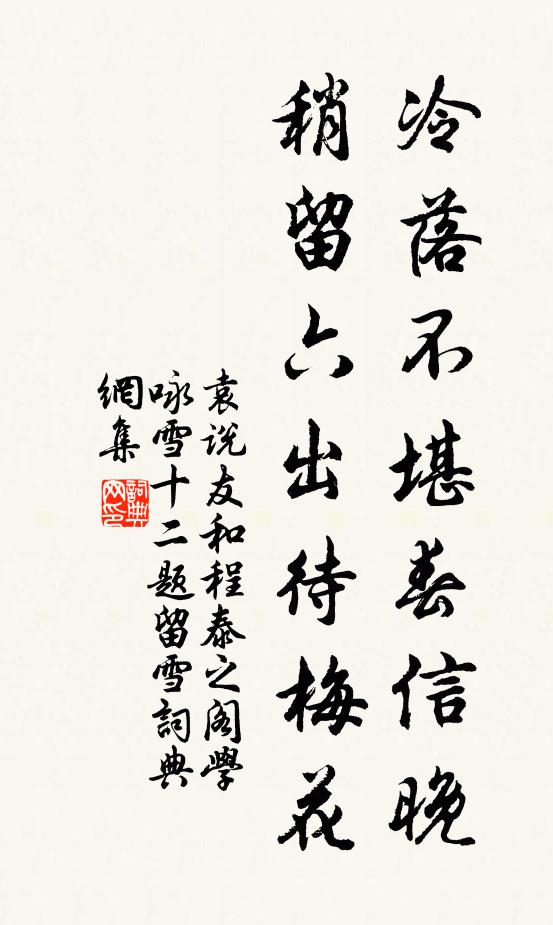 冷落不堪春信晚
稍留六出待梅花
袁说友和程泰之阁學
咏雪十二题留雪詞典
網集
詞典網印